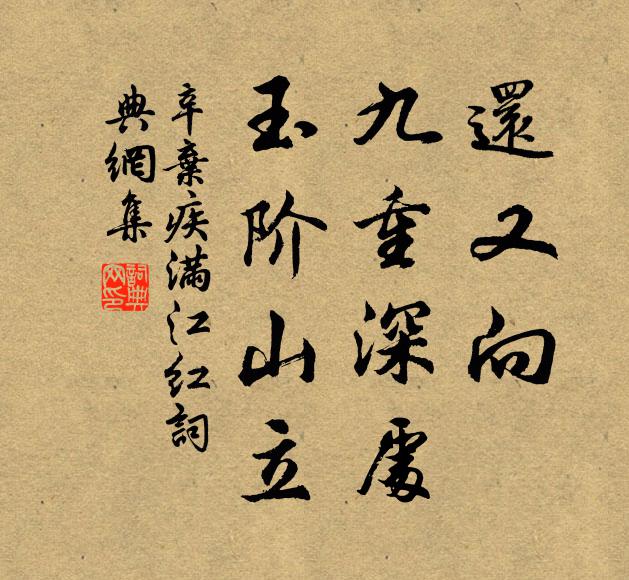 還又向
九重深處
玉阶山立
辛棄疾滿江红詞
典網集
詞典
网印